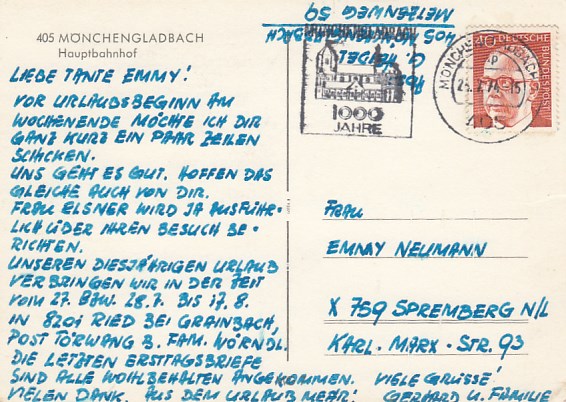 405 MÖNCHENGLADBACH
Hauptbahnhof
LIEBE TANTE EMMY!
VOR URLAUBSBEGINN AM
WOCHENENDE MÖCHTE ICH DIR
GANZ KURZ EIN PAAR ZEILEN
SCHICKEN.
UNS GEHT ES GUT. HOFFEN DAS
GLEICHE AUCH VON DIR.
FRAU ELSNER WIRD JA AUSFÜHR-
LICH ÜBER IHREN BESUCH BE-
RICHTEN.
UNSEREN DIESJÄHRIGEN URLAUB
VERBRINGEN WIR IN DER ZEIT
VOM 27. BZW. 28.7. BIS 17.8.
IN 8201 RIED BEI GRAINBACH,
POST TÖRWANG B. FAM. WÖRNDL.
DIE LETZTEN ERSTTAGSBRIEFE
SIND ALLE WOHLBEHALTEN ANGEKOMMEN.
VIELEN DANK. AUS DEM URLAUB MEHR!
VIELE GRÜSSE!
GERHARD U. FAMILIE
METZENWEG 59
MÖNCHENGLADBACH
1000
JAHRE
DEUTSCHE
BUNDESPOST
MÖNCHENGLADBACH
405
FRAU
EMMY NEUMANN
X 759 SPREMBERG N/L
KARL-MARX-STR. 93